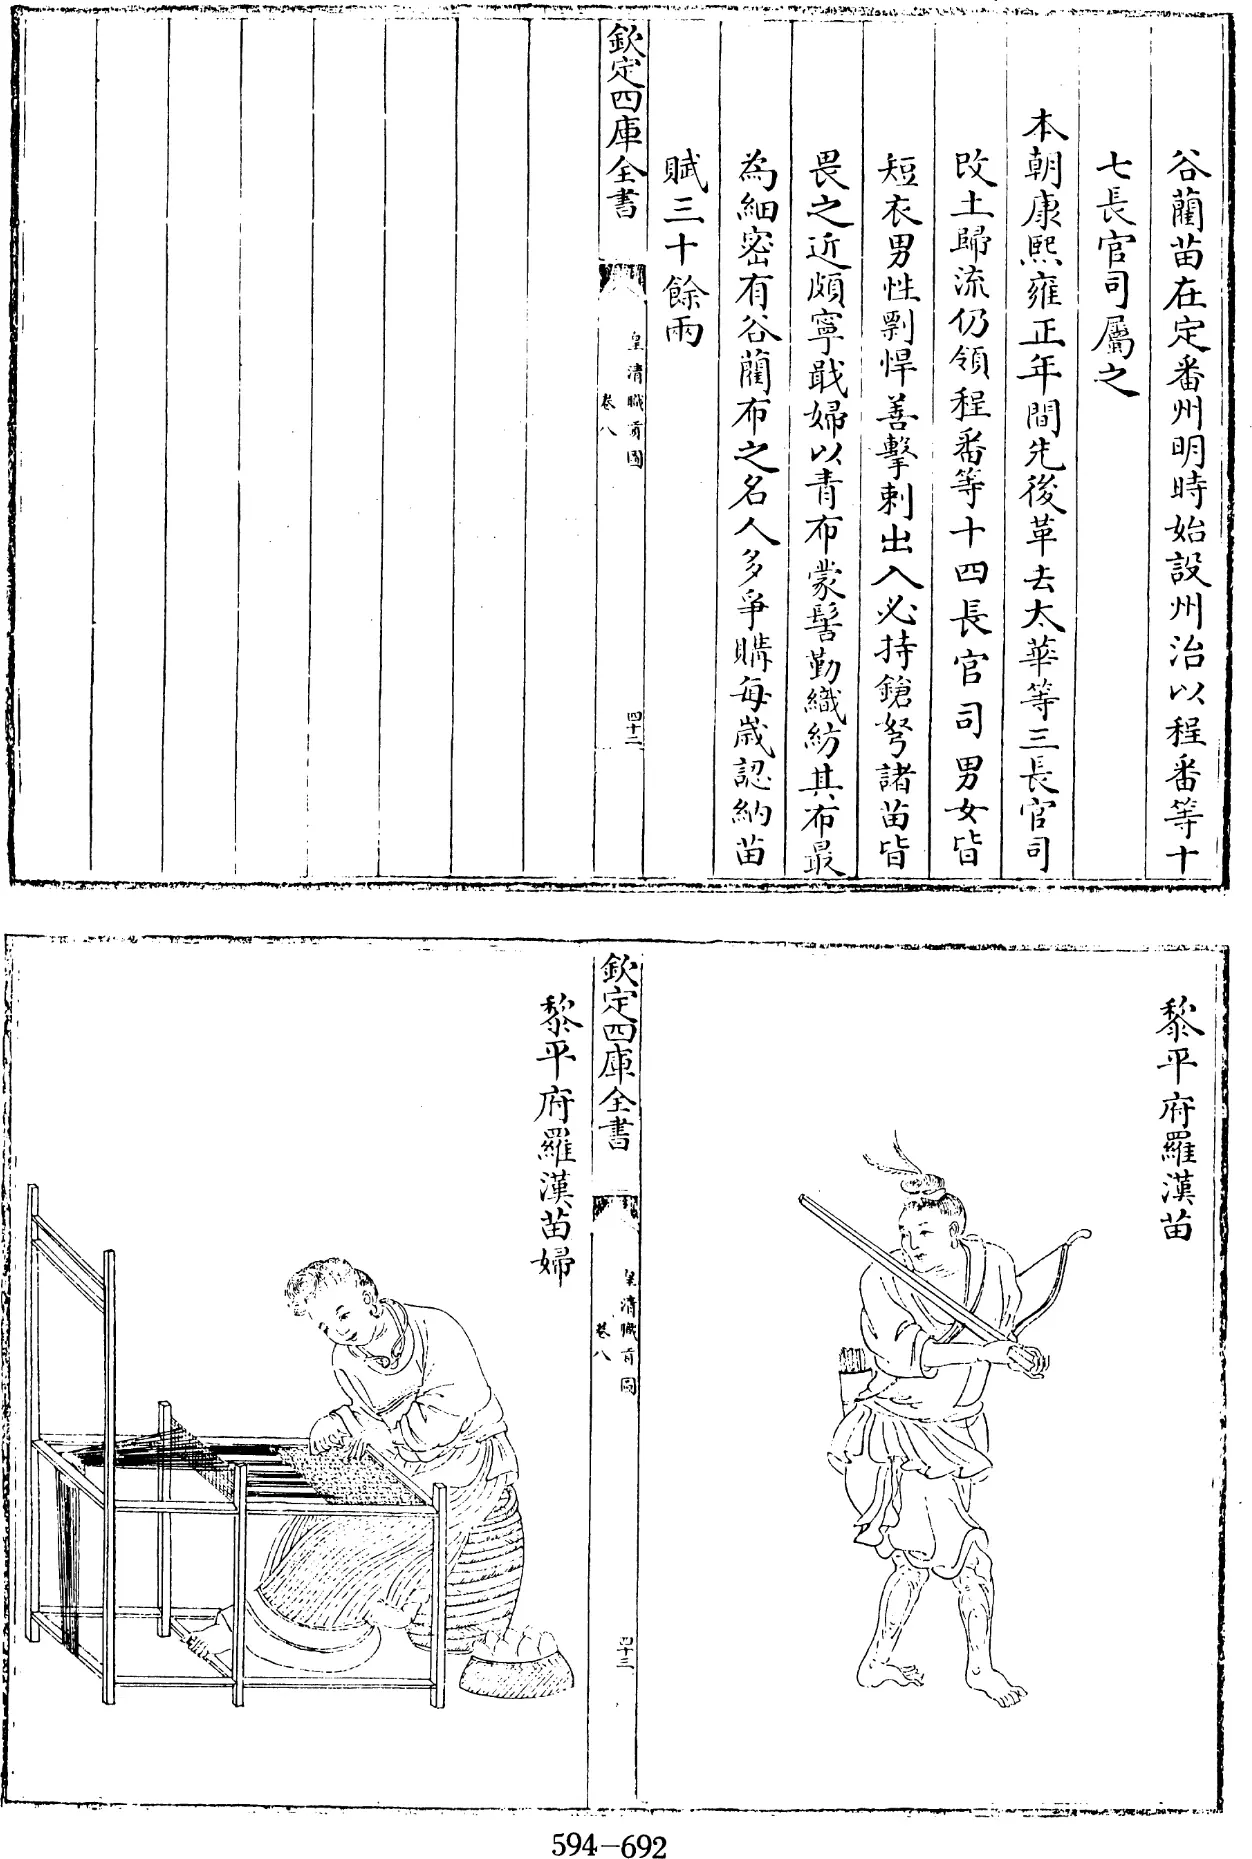 谷藺苗在定番州明時始設州治以程番等十
七長官司屬之
本朝康熙雍正年間先後革去太華等三長官司
改土歸流仍領程番等十四長官司男女皆
短衣男性剽悍善擊刺出入必持鎗弩諸苗皆
畏之近頗寧戢婦以青布蒙髻勤織紡其布最
為細密有谷藺布之名人多爭購每歲認納苗
賦三十餘兩
欽定四庫全書
皇清職貢圖
卷八
四十二
黎平府羅漢苗
欽定四庫全書
皇清職貢圖
卷八
四十三
黎平府羅漢苗婦
594-692